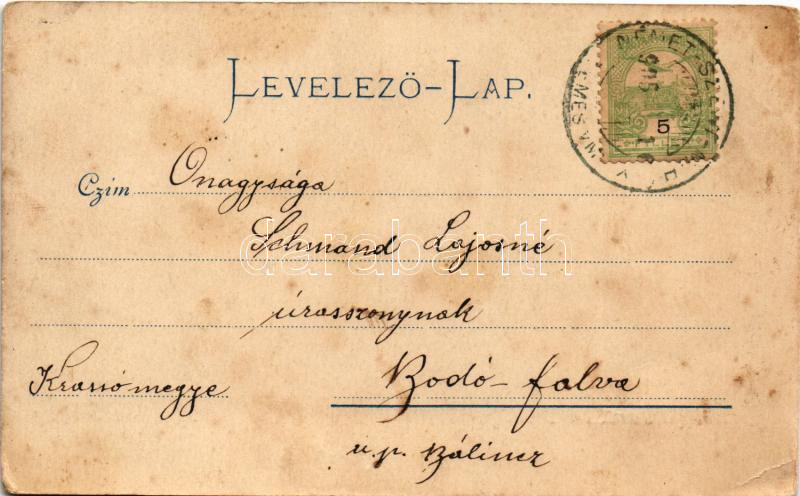 LEVELEZŐ-LAP.
NÉMET-SZ
5
Czim Őnagysága
Schmand Lajosné
úrasszonynak
Krassómegye Bodó-falva
u.p. Bálincz
darabanth